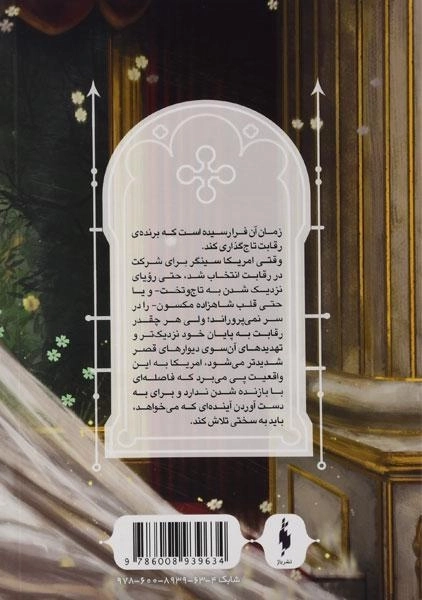 زمان آن فرا رسیده است که برنده‌ی
رقابت تاج‌گذاری کند.
وقتی امریکا سینگر برای شرکت
در رقابت انتخاب شد، حتی رؤیای
نزدیک شدن به تاج‌وتخت- و یا
حتی قلب شاهزاده مکسون- را در
سر نمی‌پروراند؛ ولی هر چقدر
رقابت به پایان خود نزدیک‌تر و
تهدیدهای آن‌سوی دیوارهای قصر
شدیدتر می‌شود، امریکا به این
واقعیت پی می‌برد که فاصله‌ای
با بازنده شدن ندارد و برای به
دست آوردن آینده‌ای که می‌خواهد،
باید به سختی تلاش کند.
9 786008 939634
شابک ۴-۶۳-۸۹۳۹-۶۰۰-۹۷۸
نشر باژ